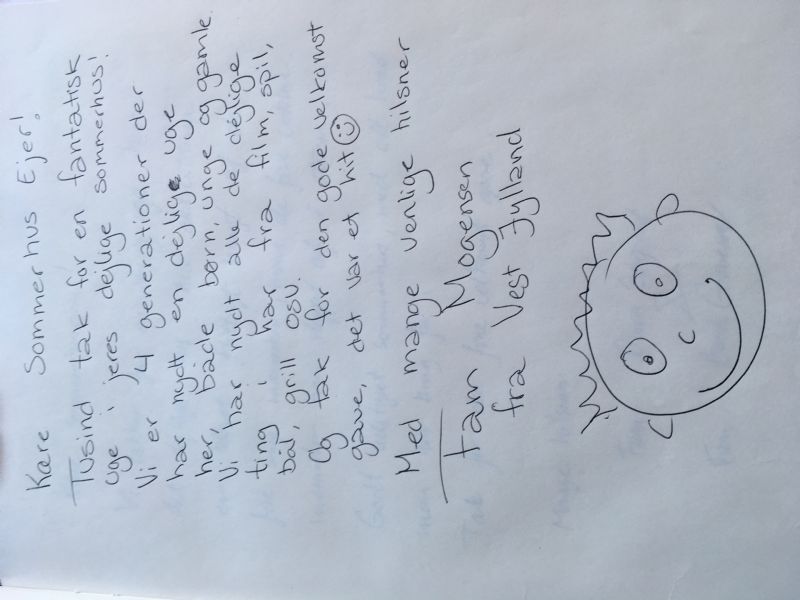 Kære Sommerhus Ejer!
Tusind tak for en fantatisk
uge i jeres dejlige sommerhus!
Vi er 4 generationer der
har nydt en dejlige uge
her, både børn, unge og gamle.
Vi har nydt alle de dejlige
ting i har fra film, spil,
bål, grill osv.
Og tak for den gode velkomst
gave, det var et hit ☺
Med mange venlige hilsner
Fam Mogensen
fra Vest Jylland